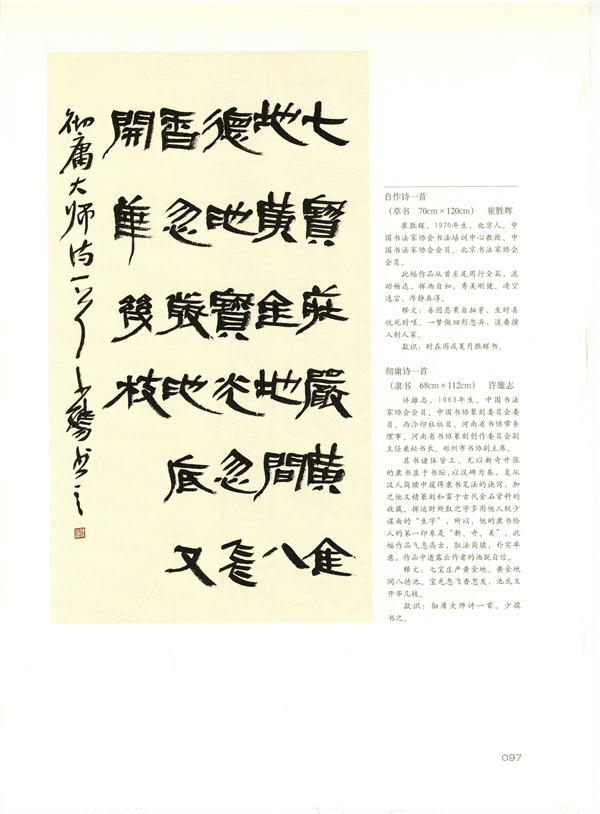 七寶莊嚴黃金
地黃金地間八
德池寶光忽飛
香忽發池底又
開華後枝
彻庸大师诗一首 少孺书之
自作诗一首
（草书 70cm×120cm） 崔胜辉
崔胜辉，1970年生，北京人。中
国书法家协会书法培训中心教授、中
国书法家协会会员、北京书法家协会
会员。
此幅作品从首至尾周行全篇，流
动畅达，挥洒自如，秀美刚健、清空
迭宕，厚静真淳。
释文：善因恶果自抽芽，生时喜
悦死时嗟。一梦做回形怱弃，这番撞
入别人家。
款识：时在丙戌夏月胜辉书。
彻庸诗一首
（隶书 68cm×112cm） 许雄志
许雄志，1963年生。中国书法
家协会会员、中国书协篆刻委员会委
员、西泠印社社员、河南省书协常务
理事、河南省书协篆刻创作委员会副
主任兼秘书长、郑州市书协副主席。
其书诸体皆工，尤以新奇开张
的隶书显于书坛，以汉碑为基，复从
汉人简牍中窥得隶书笔法的诀窍，加
之他又精篆刻和富于古代金石资料的
收藏，挥运时所取之字多用他人较少
谋面的“生字”，所以，他的隶书给
人的第一印象是“新、奇、美”。此
幅作品气息高古，取法简牍，朴实率
意，作品中透露出作者的洒脱自信。
释文：七宝庄严黄金地，黄金地
间八德池。宝光怱飞香怱发，池底又
开华几枝。
款识：彻庸大师诗一首。少孺
书之。
097